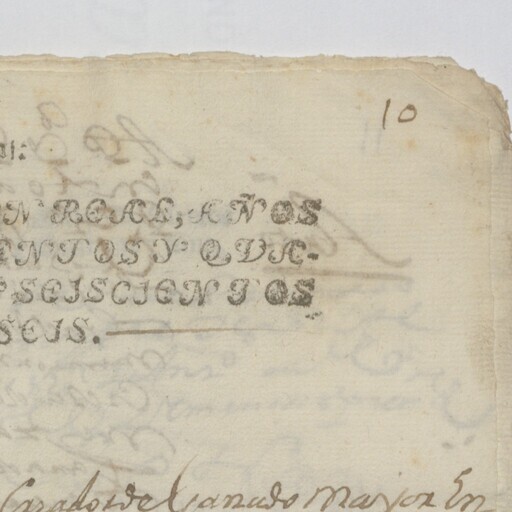 10
N REAL, AÑOS
ENTOS Y QVA-
SEISCIENTOS
SEIS.
de Ganado mayor En